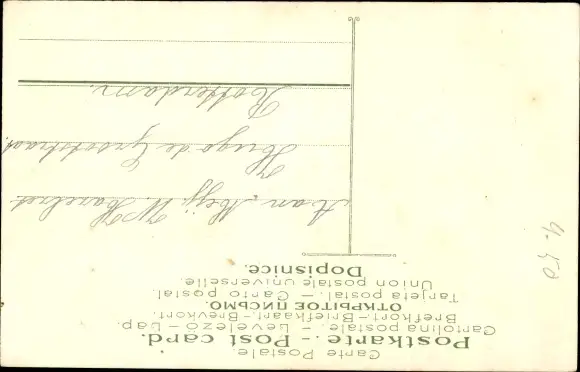 Carte Postale.
Postkarte. - Post card.
Cartolina postale. - Levelező-Lap.
Brefkort.-Briefkaart.-Brevkort.
ОТКРЫТОЕ ПИСЬМО.
Tarjeta postal. - Carto postal.
Union postale universelle.
Dopisnice.
Aan Mej. W.
Hugo de Grootstraat.
Rotterdam.
4-50